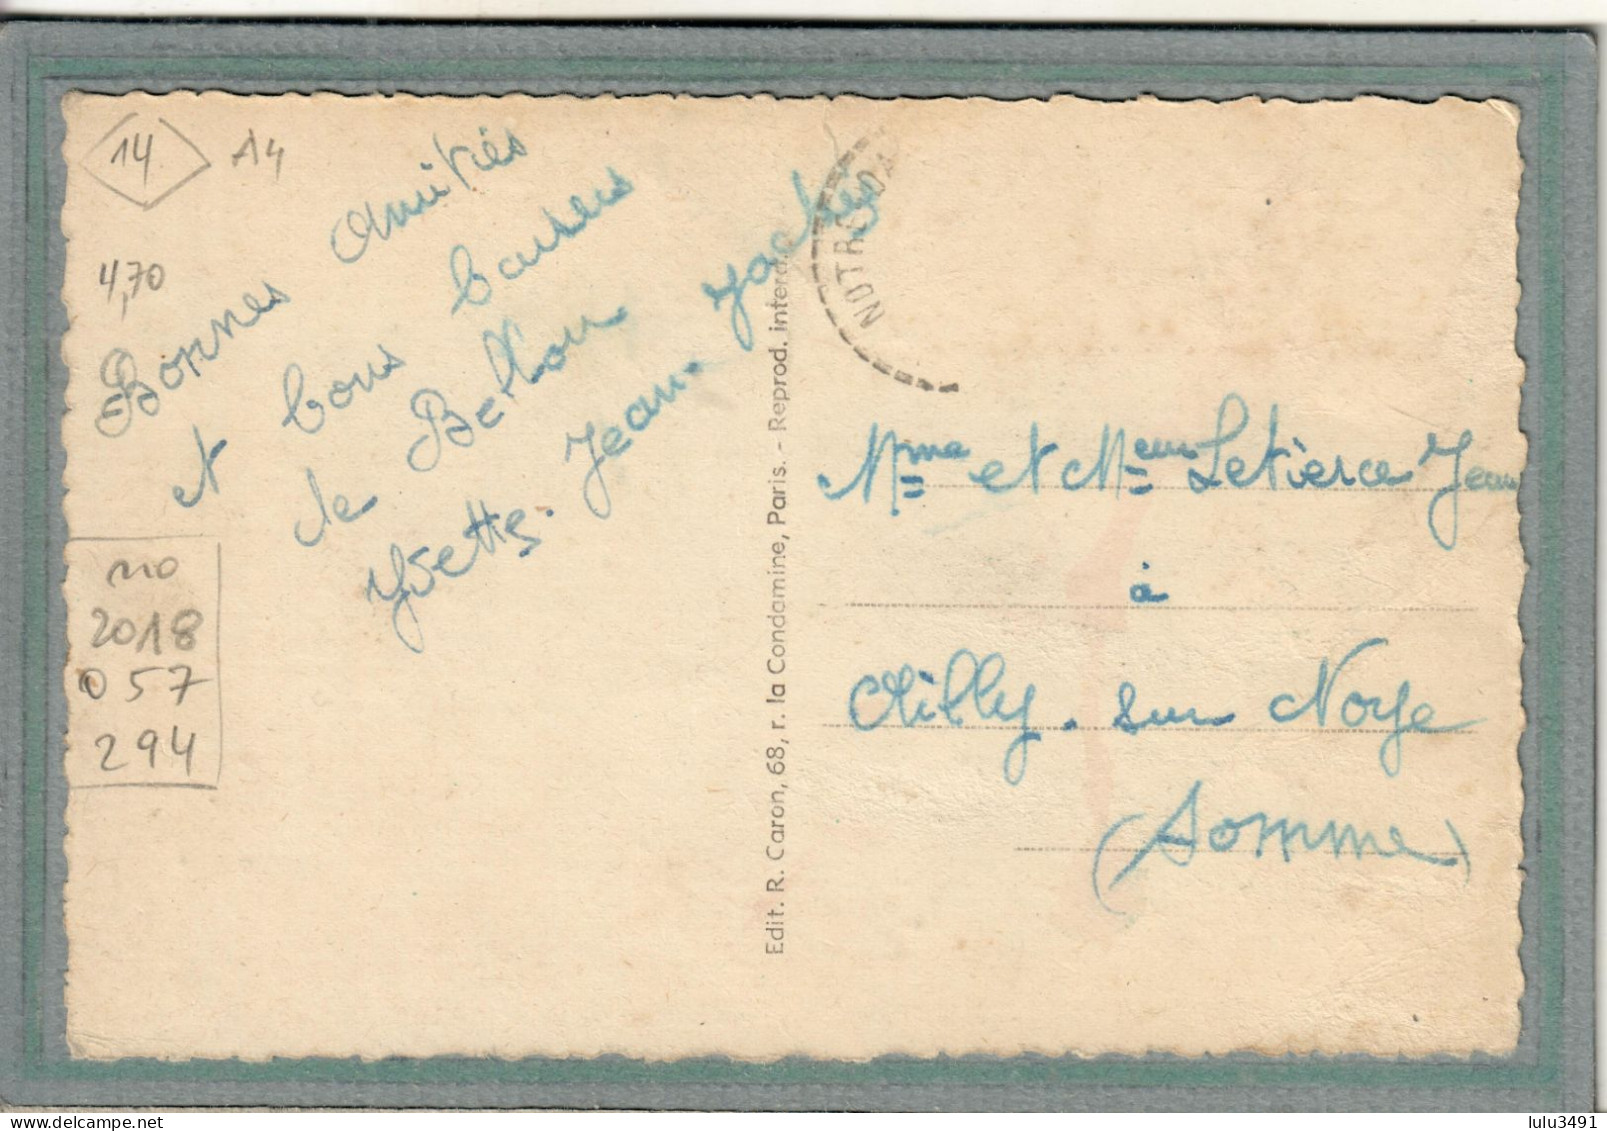 14
A4
4,70
Bonnes amitiés
et bons baisers
de Bellou
Yvette. Jean-Jackes
no
2018
057
294
Edit. R. Caron, 68, r. la Condamine, Paris. - Reprod. interd.
NOTRE DA
Mme et Meur Letierce Jean
à
Ailly. sur Noye
(Somme)
lulu3491